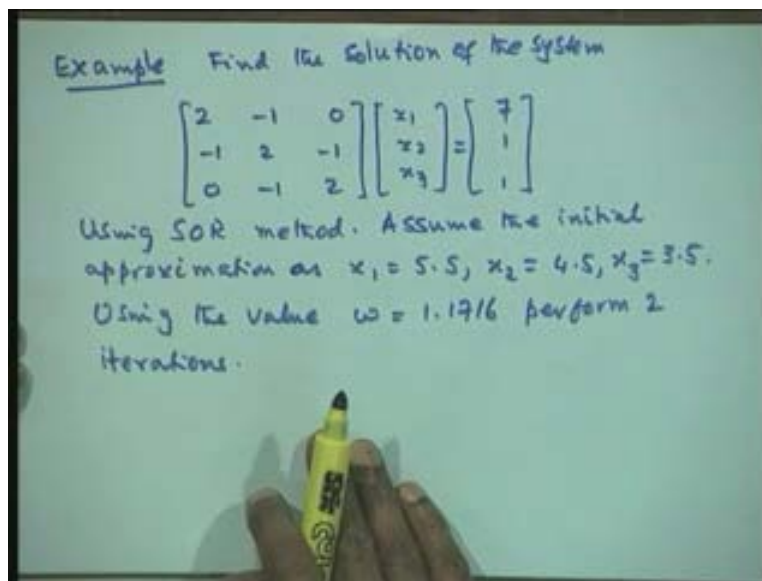 Example Find the solution of the system
[2 -1 0] [x1] = [7]
[-1 2 -1] [x2] [1]
[0 -1 2] [x3] [1]
Using SOR method. Assume the initial
approximation as x1 = 5.5, x2 = 4.5, x3 = 3.5.
Using the value ω = 1.1716 perform 2
iterations.